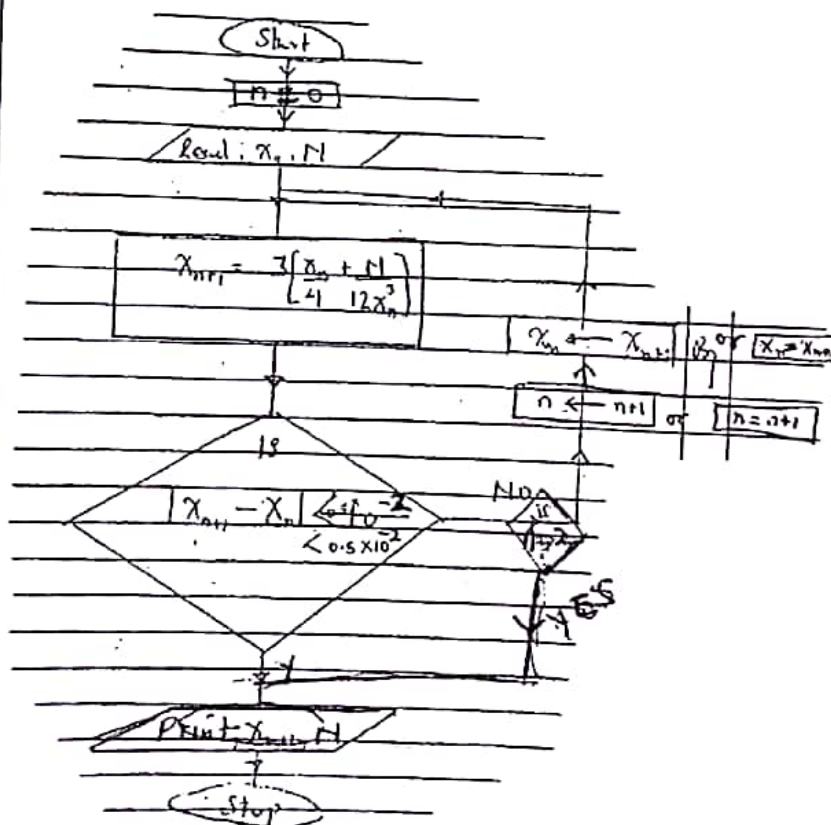 Start
n = 0
Read: x₀, N
xₙ₊₁ = 3[xₙ/4 + N/12xₙ³]
xₙ ← xₙ₊₁ or xₙ = xₙ₊₁
n ← n+1 or n = n+1
is
|xₙ₊₁ - xₙ|
< 0.5 × 10⁻²
No
is
Yes
Y
Print xₙ₊₁, N
Stop